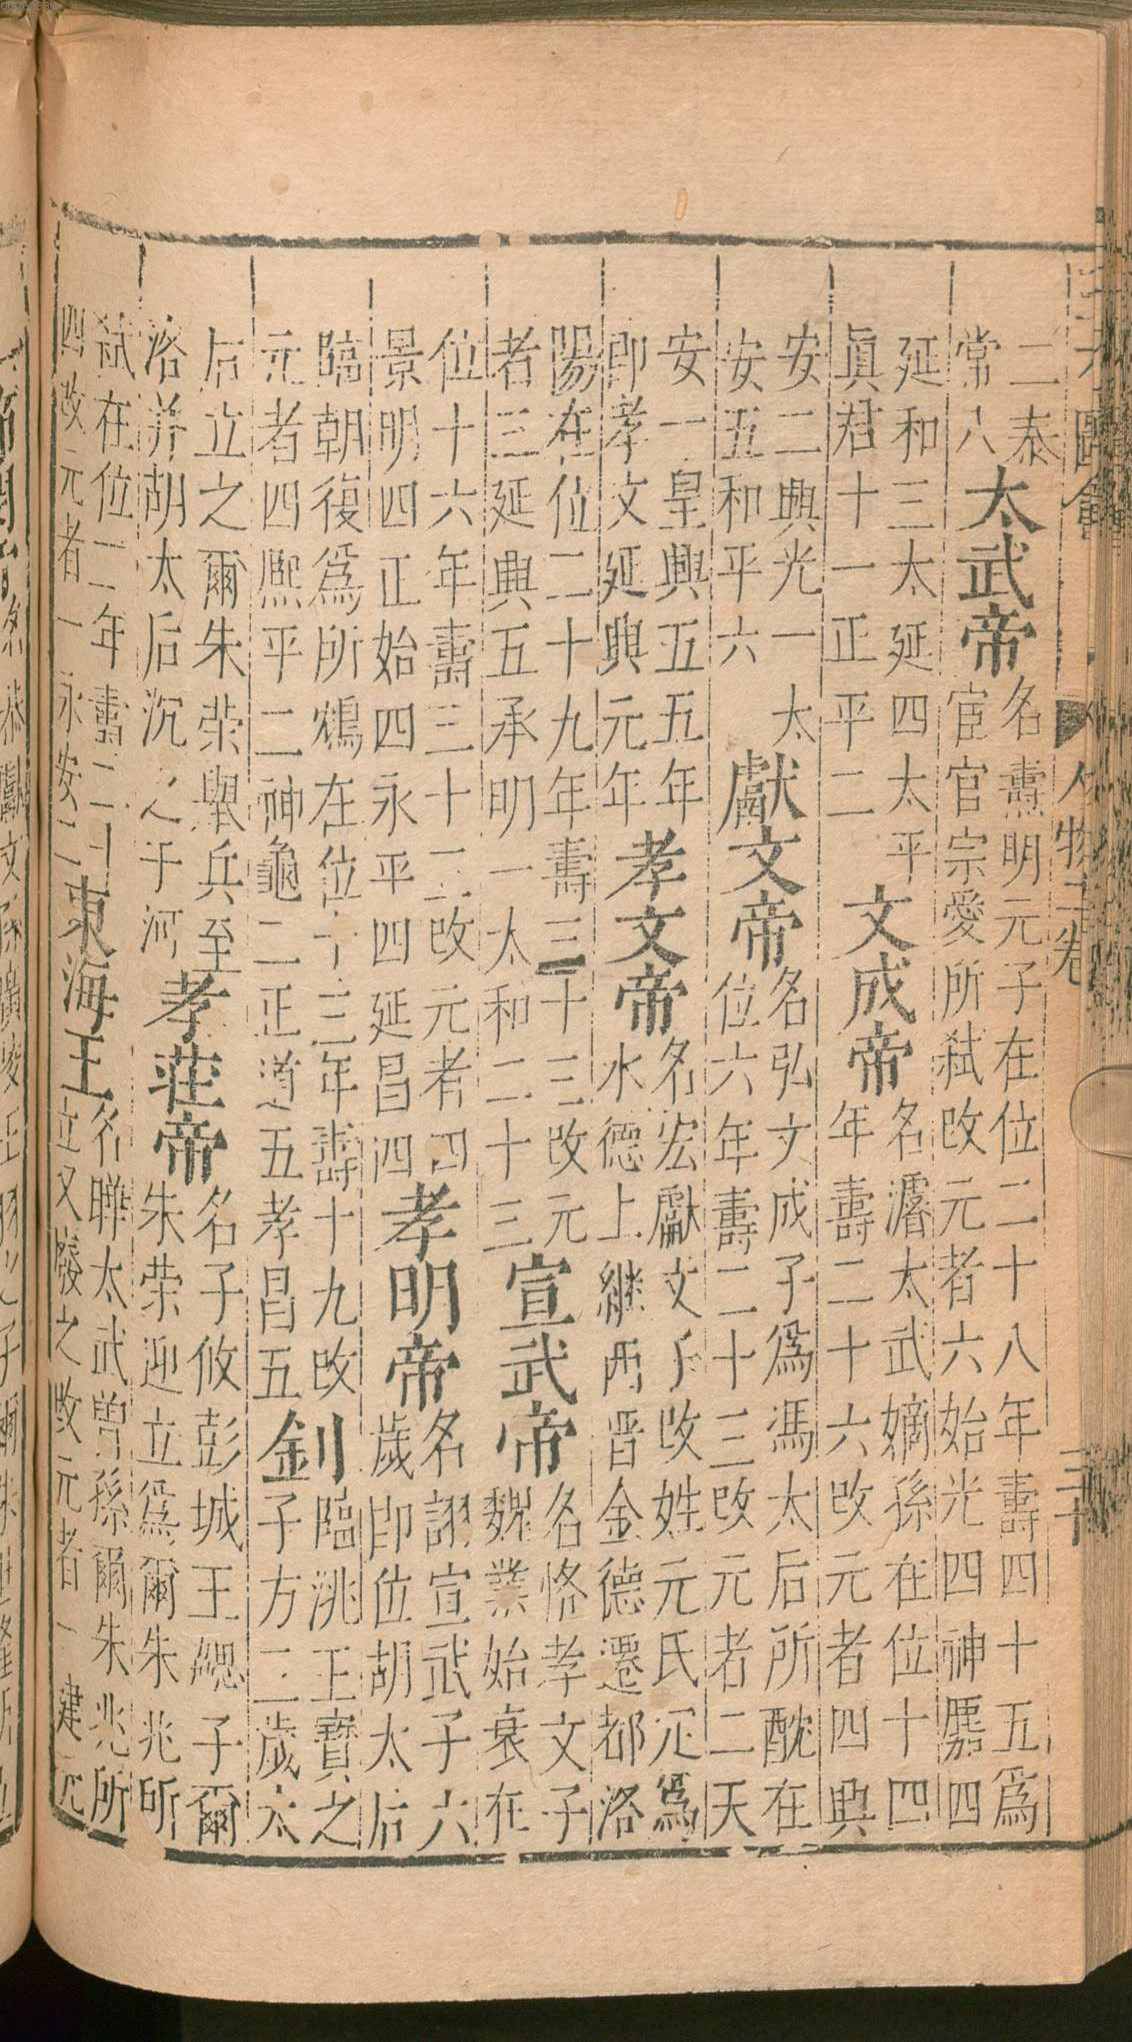 三才圖會 人物二卷 三十
二泰
常八
太武帝
名燾明元子在位二十八年壽四十五爲
宦官宗愛所弑改元者六始光四神䴥四
延和三太延四太平
眞君十一正平二
文成帝
名濬太武嫡孫在位十四
年壽二十六改元者四興
安二興光一太
安五和平六
獻文帝
名弘文成子爲馮太后所酖在
位六年壽二十三改元者二天
安一皇興五五年
即孝文延興元年
孝文帝
名宏獻文子改姓元氏定爲
水德上繼西晋金德遷都洛
陽在位二十九年壽三十三改元
者三延興五承明一太和二十三
宣武帝
名恪孝文子
魏業始衰在
位十六年壽三十二改元者四
景明四正始四永平四延昌四
孝明帝
名詡宣武子六
歲即位胡太后
臨朝復爲所鴆在位十三年壽十九改
元者四熈平二神龜二正道五孝昌五
釗
臨洮王寶之
子方二歲太
后立之爾朱荣舉兵至
洛并胡太后沉之于河
孝莊帝
名子攸彭城王勰子爾
朱荣迎立爲爾朱兆所
弑在位二年壽二十
四改元者一永安二
東海王
名曄太武曽孫爾朱兆所
立又廢之改元者一建元